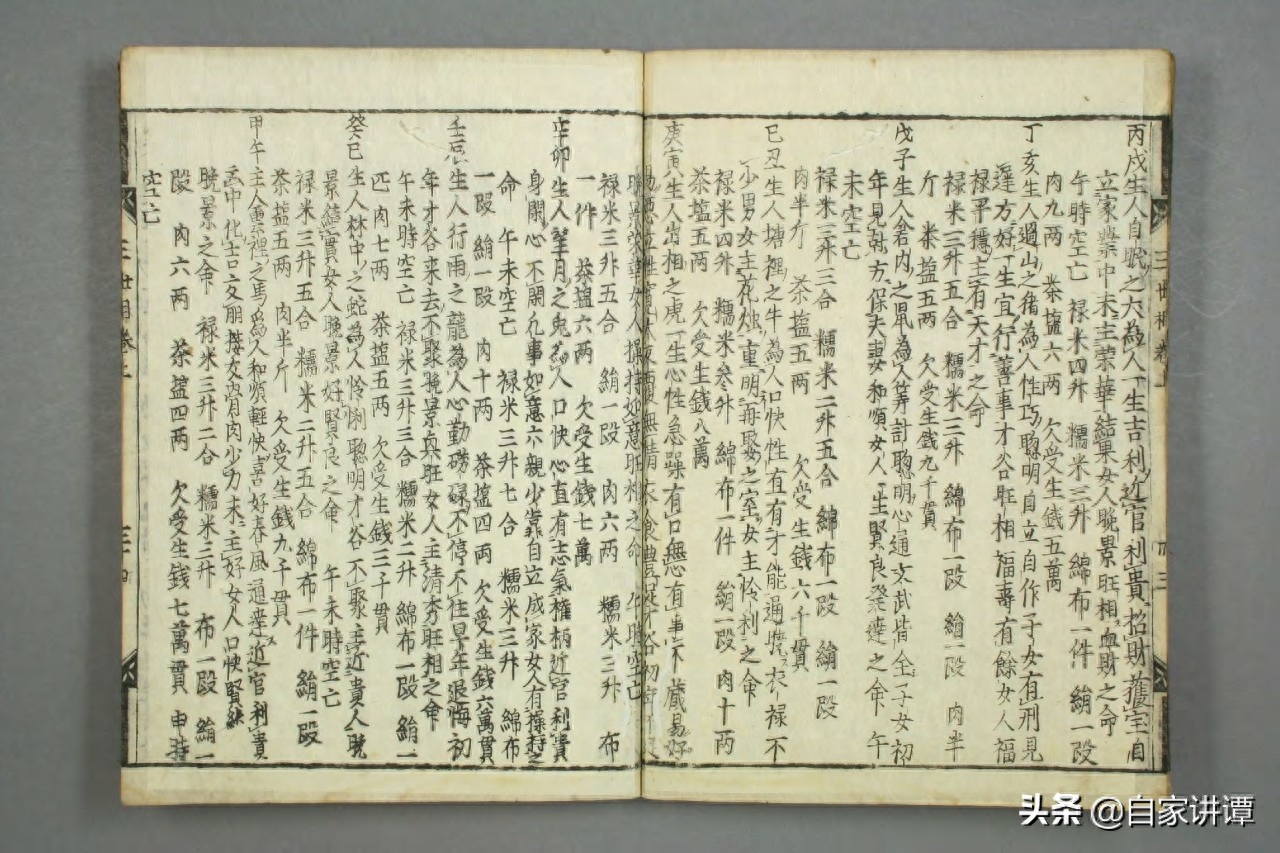 丙戌生人自眠之犬為人一生吉利近官利貴招財獲宝自
立家業中末主榮華結果女人晚景旺相血財之命
午時空亡 禄米四升 糯米三升 綿布一件 絹一段
肉九两 茶塩六两 欠受生錢五萬
丁亥生人過山之猪為人性巧聡明自立自作子女有刑見
達方好一生宜行善事才谷旺相福壽有餘女人福
禄平穩主有天才之命
禄米三升五合 糯米三升 綿布一段 絹一段 肉半
斤 茶塩五两 欠受生錢九千貫
戊子生人倉内之鼠為人筭計聡明心通文武皆全子女初
年見刑方保夫妻和順女人一生賢良發達之命 午
未空亡
禄米三升三合 糯米二升五合 綿布一段 絹一段
肉半斤 茶塩五两 欠受生錢六千貫
己丑生人塘裡之牛為人口快性直有才能通曉衣禄不
少男女主花烛重明再娶之室女主伶利之命
禄米四升 糯米叁升 綿布一件 絹一段 肉十两
茶塩五两 欠受生錢八萬
庚寅生人出相之虎一生心性急躁有口無心有事不藏易好
辛卯生人望月之兔為人口快心直有志氣權柄近官利貴
身閑心不閑凡事如意六親少靠自立成家女人有操持之
命 午未空亡 禄米三升七合 糯米三升 綿布
一段 絹一段 肉十两 茶塩四两 欠受生錢六萬貫
壬辰生人行雨之龍為人心勤磱碌不停不住早年退悔初
年才谷來去不聚晚景兵旺女人主清秀旺相之命
午未時空亡 禄米三升三合 糯米二升 綿布一段 絹一
匹 肉七两 茶塩五两 欠受生錢三千貫
癸巳生人林中之蛇為人怜悧聡明才谷不聚主近貴人晚
景結實女人晚景好賢良之命 午未時空亡
禄米三升五合 糯米二升五合 綿布一件 絹一段
茶塩五两 肉半斤 欠受生錢九千貫
甲午生人雲裡之馬為人和順輕快喜好春風通達近官利貴
晚景之命 禄米三升二合 糯米三升 布一段 絹一
段 肉六两 茶塩四两 欠受生錢七萬貫 申時
空亡
头条 @自家讲谭